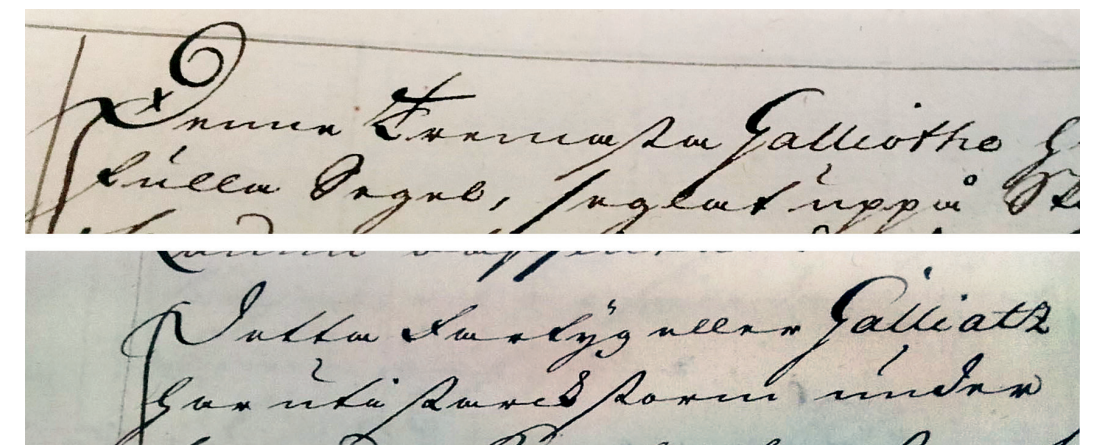 Denne Tremasta Galliothe
fulla Segel, seglat uppå
Detta Fartÿg eller Galliatz
har uti starck storm under